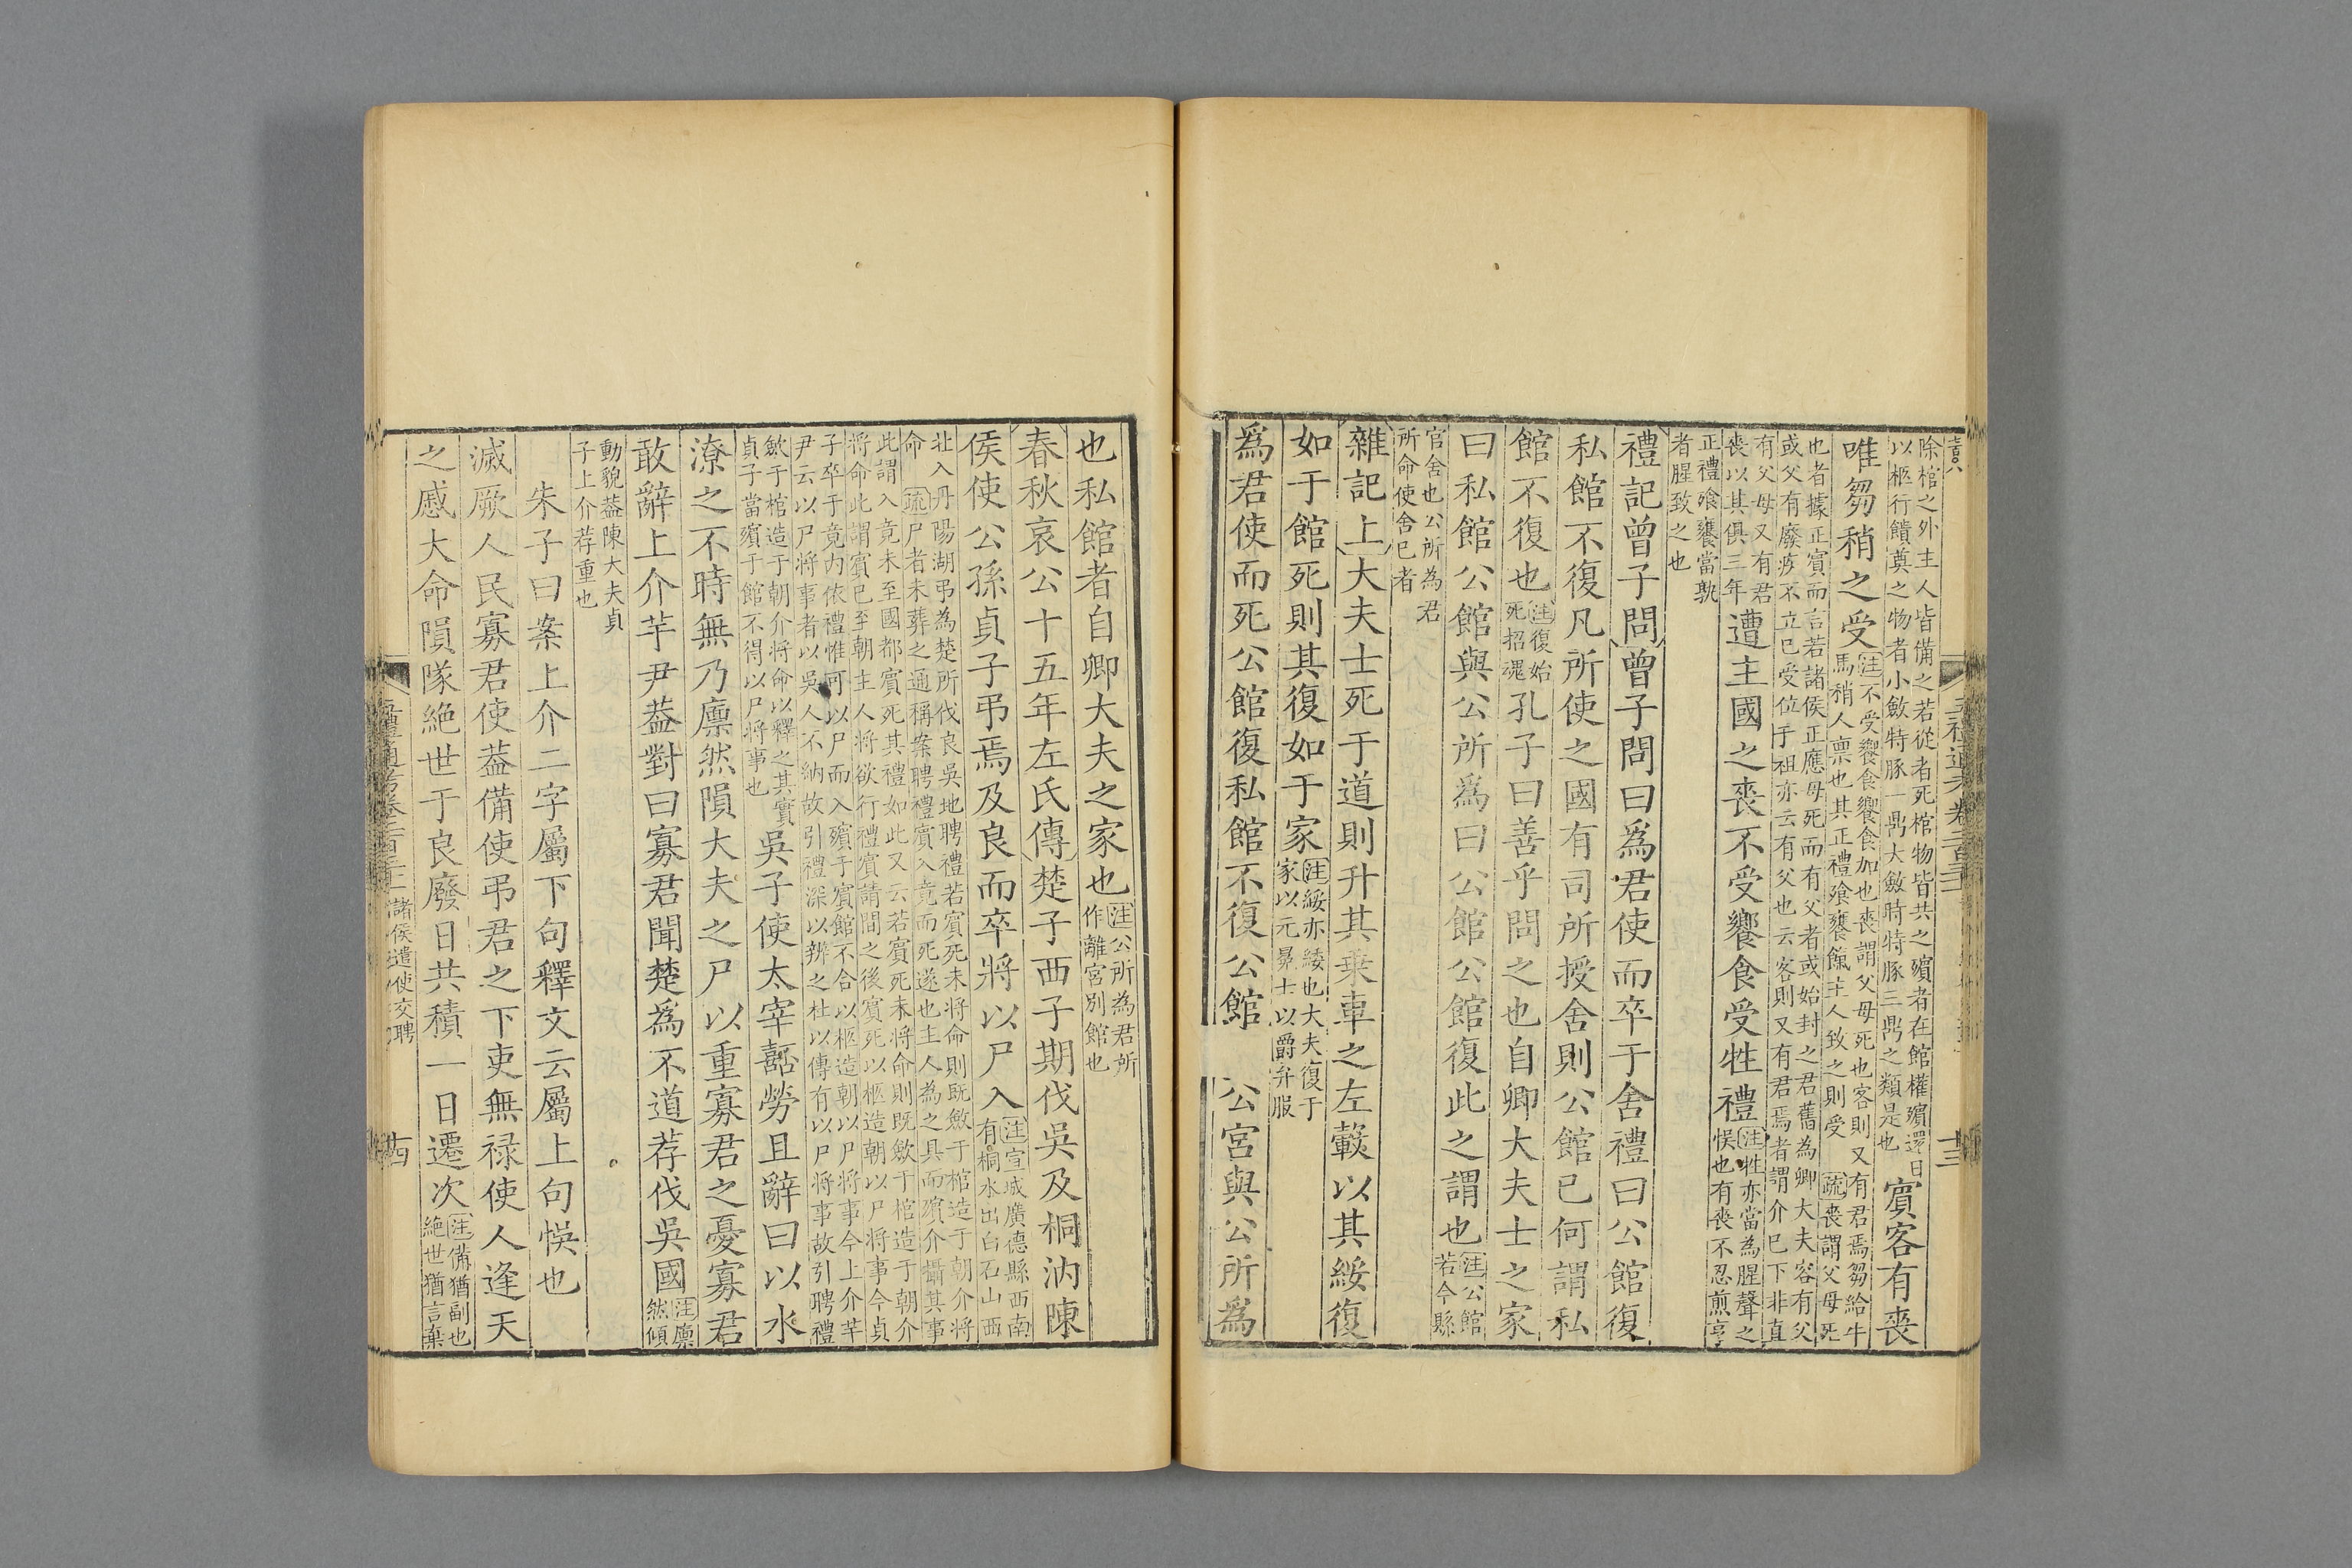 除棺之外主人皆備之若從者死棺物皆共之殯者在館權殯還日
以柩行饋奠之物者小斂特豚一鼎大斂時特豚三鼎之類是也
賓客有喪
唯芻稍之受
注不受饗食饗食加也喪謂父母死也客則又有君焉芻給牛
馬稍人稟也其正禮飧饔餼主人致之則受 疏喪謂父母死
也者據正賓而言若諸侯正應母死而有父者或始封之君舊為卿大夫容有父
或父有廢疾不立已受位于祖亦云有父也云客則又有君焉者謂介已下非直
有父母又有君
喪以其俱三年
遭主國之喪不受饗食受牲禮
注牲亦當為腥聲之
悞也有喪不忍煎亨
正禮飧饔當孰
者腥致之也
禮記曾子問曾子問曰爲君使而卒于舍禮曰公館復
私館不復凡所使之國有司所授舍則公館已何謂私
館不復也
注復始
死招魂
孔子曰善乎問之也自卿大夫士之家
曰私館公館與公所爲曰公館公館復此之謂也
注公館
若今縣
官舍也公所為君
所命使舍已者
雜記上大夫士死于道則升其乗車之左轂以其綏復
如于館死則其復如于家
注綏亦緌也大夫復于
家以元冕士以爵弁服
爲君使而死公館復私館不復公館 公宮與公所爲
也私館者自卿大夫之家也
注公所為君所
作離宮別館也
春秋哀公十五年左氏傳楚子西子期伐吳及桐汭陳
侯使公孫貞子弔焉及良而卒將以尸入
注宣城廣德縣西南
有桐水出白石山西
北入丹陽湖弔為楚所伐良吳地聘禮若賓死未將命則既斂于棺造于朝介將
命 疏尸者未葬之通稱案聘禮賓入竟而死遂也主人為之具而殯介攝其事
此謂入竟未至國都賓死其禮如此又云若賓死未將命則既斂于棺造于朝介
將命此謂賓已至朝主人將欲行禮賓請間之後賓死以柩造朝以尸將事今貞
子卒于竟内依禮惟可以尸而入殯于賓館不合以柩造朝以尸將事今上介芊
尹云以尸將事者以吳人不納故引禮深以辨之杜以傳有以尸將事故引聘禮
斂于棺造于朝介將命以釋之其實
貞子當殯于館不得以尸將事也
吳子使太宰嚭勞且辭曰以水
潦之不時無乃廪然隕大夫之尸以重寡君之憂寡君
敢辭上介芊尹葢對曰寡君聞楚爲不道荐伐吳國
注廪
然傾
動貌葢陳大夫貞
子上介荐重也
朱子曰案上介二字屬下句釋文云屬上句悞也
滅厥人民寡君使葢備使弔君之下吏無禄使人逢天
之慼大命隕隊絶世于良廢日共積一日遷次
注備猶副也
絶世猶言棄
諸侯遣使交聘
十四